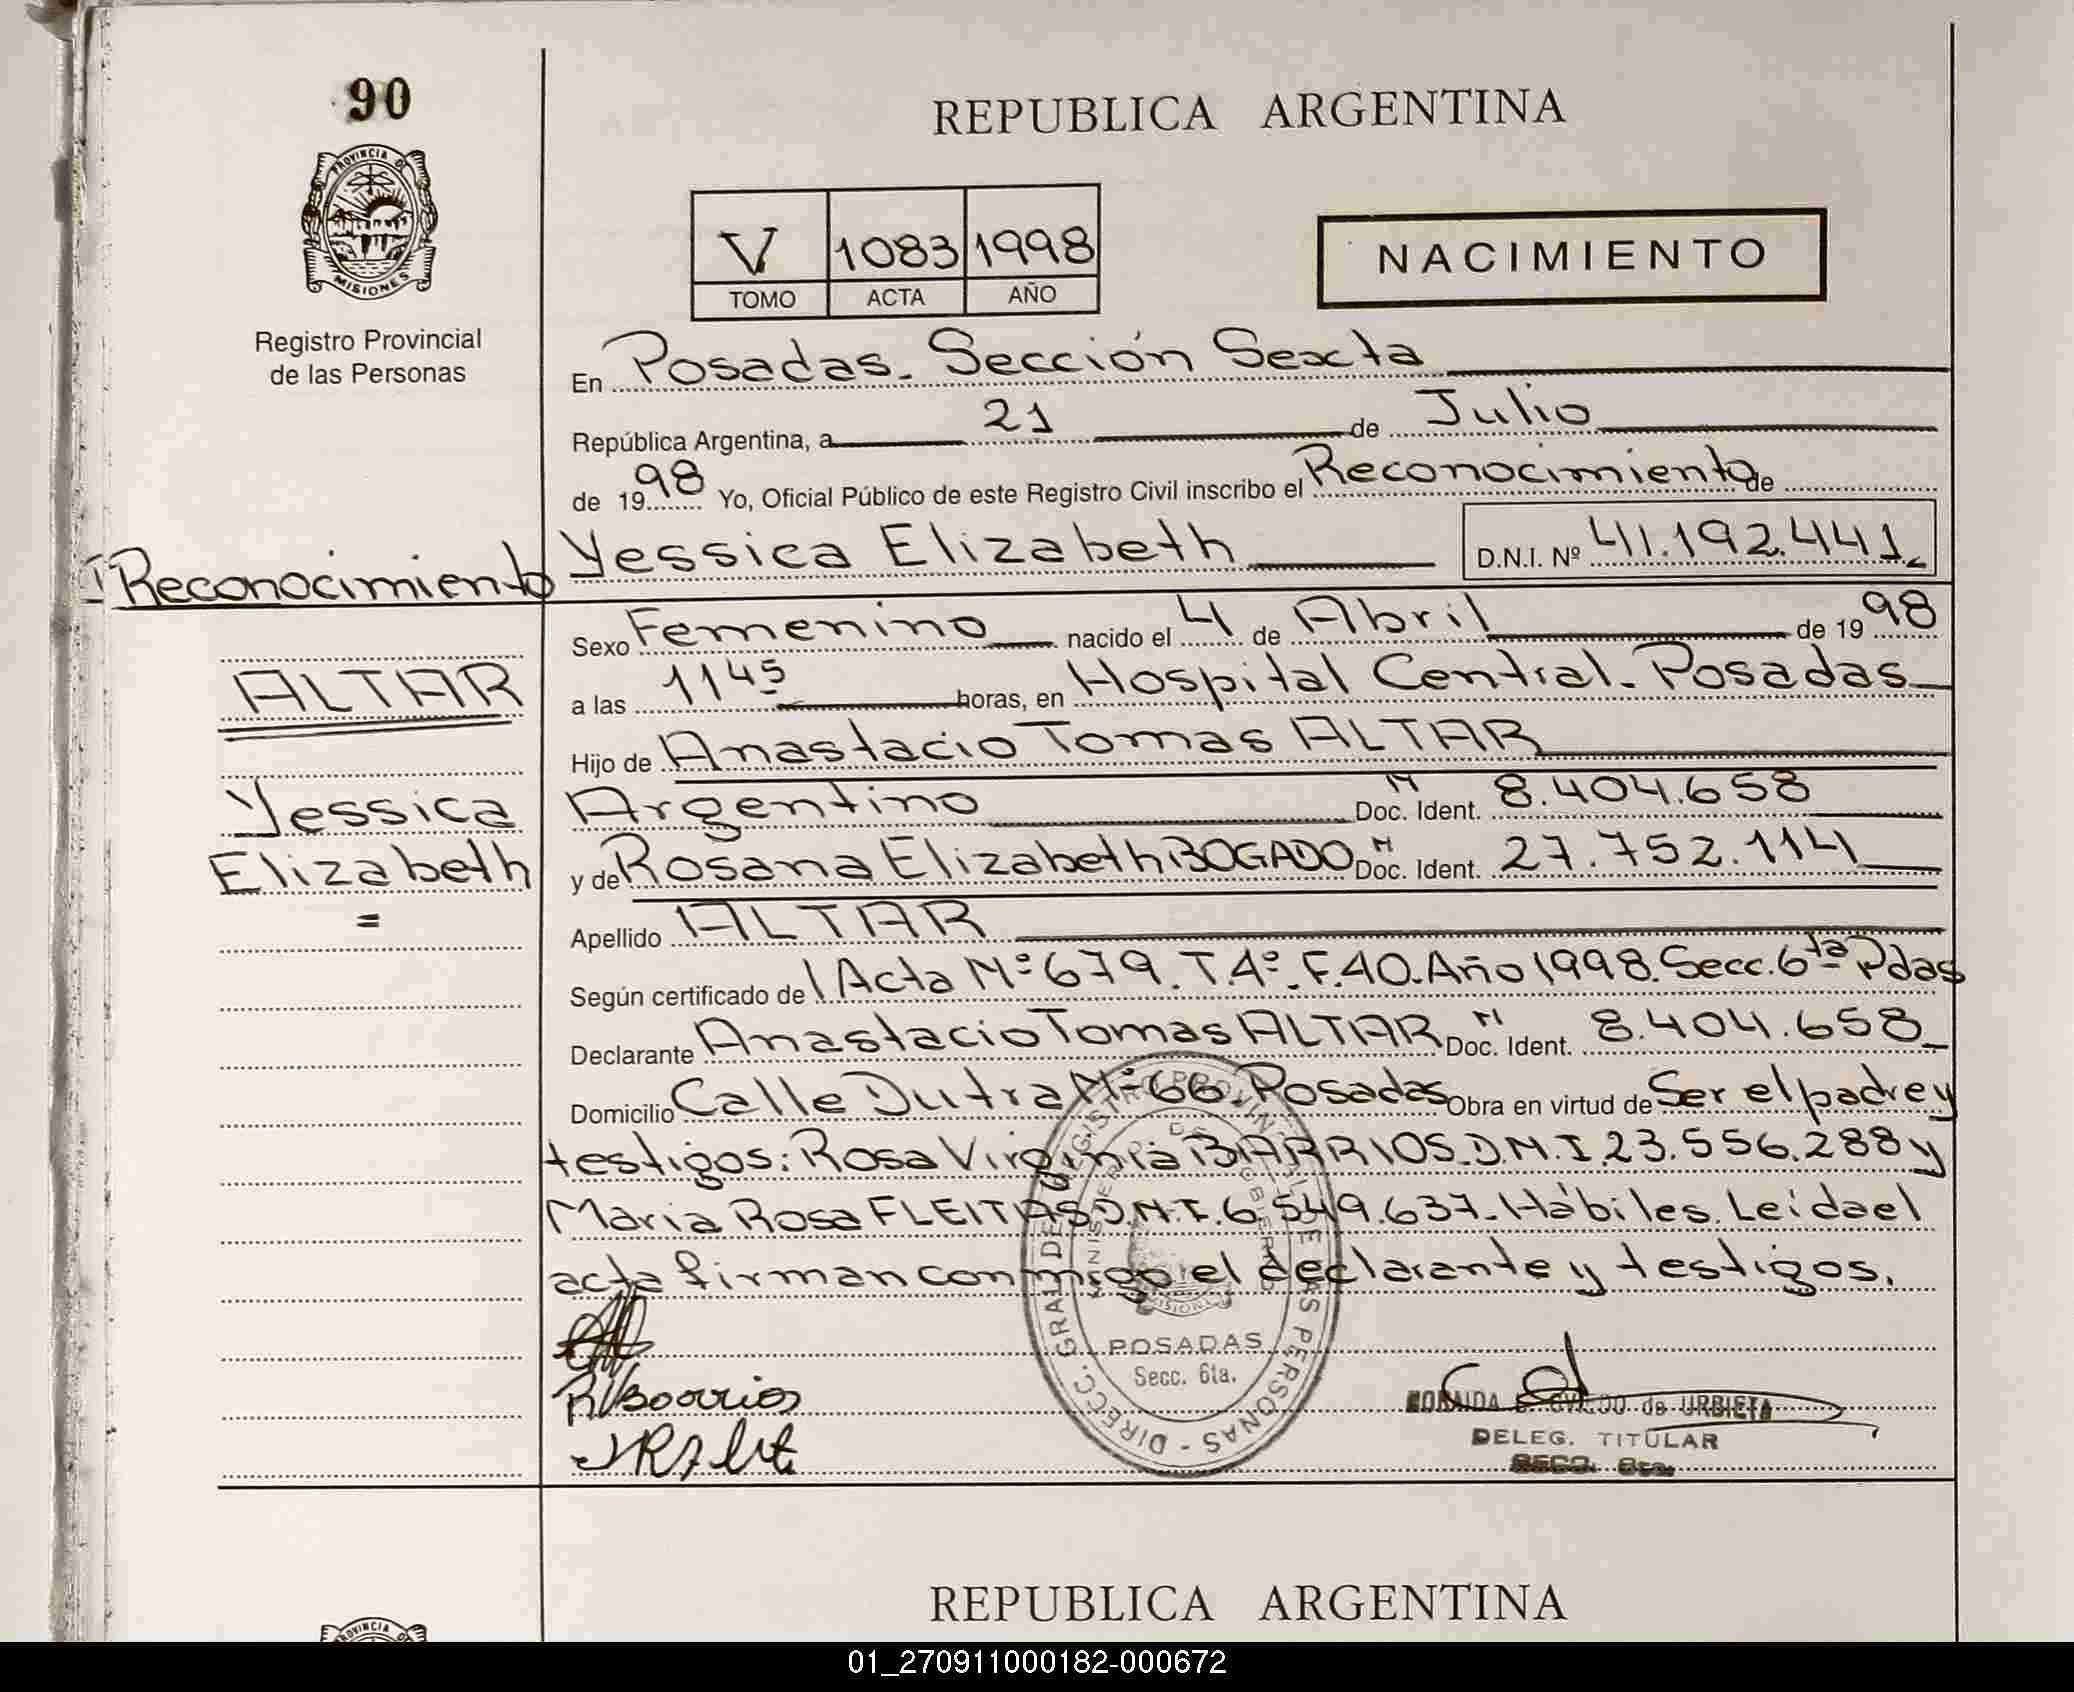 90
REPUBLICA ARGENTINA
PROVINCIA DE
MISIONES
Registro Provincial
de las Personas
V 1083 1998
TOMO ACTA AÑO
NACIMIENTO
En Posadas. Sección Sexta
República Argentina, a 21 de Julio
de 1998 Yo, Oficial Público de este Registro Civil inscribo el Reconocimiento de
Reconocimiento
Yessica Elizabeth D.N.I. Nº 41.192.441
ALTAR
Yessica
Elizabeth
=
Sexo Femenino nacido el 4 de Abril de 1998
a las 11 45 horas, en Hospital Central. Posadas
Hijo de Anastacio Tomas ALTAR
Argentino N Doc. Ident. 8.404.658
y de Rosana Elizabeth BOGADO N Doc. Ident. 27.752.114
Apellido ALTAR
Según certificado de Acta Nº 679. T.4º. F.40. Año 1998. Secc. 6ta Pdas
Declarante Anastacio Tomas ALTAR N Doc. Ident. 8.404.658
Domicilio Calle Dutra Nº 66. Posadas Obra en virtud de Ser el padre y
testigos: Rosa Virginia BARRIOS. D.N.I. 23.556.288 y
Maria Rosa FLEITAS D.N.I. 6.549.637. Hábiles. Leída el
acta firman conmigo el declarante y testigos.
DIRECC. GRAL DE REGISTRO PROVINCIAL DE LAS PERSONAS
MINISTERIO DE GOBIERNO
MISIONES
POSADAS
Secc. 6ta.
RVBarrios
de URBIETA
DELEG. TITULAR
SECC. 6ta.
REPUBLICA ARGENTINA
PROVINCIA
01_270911000182-000672